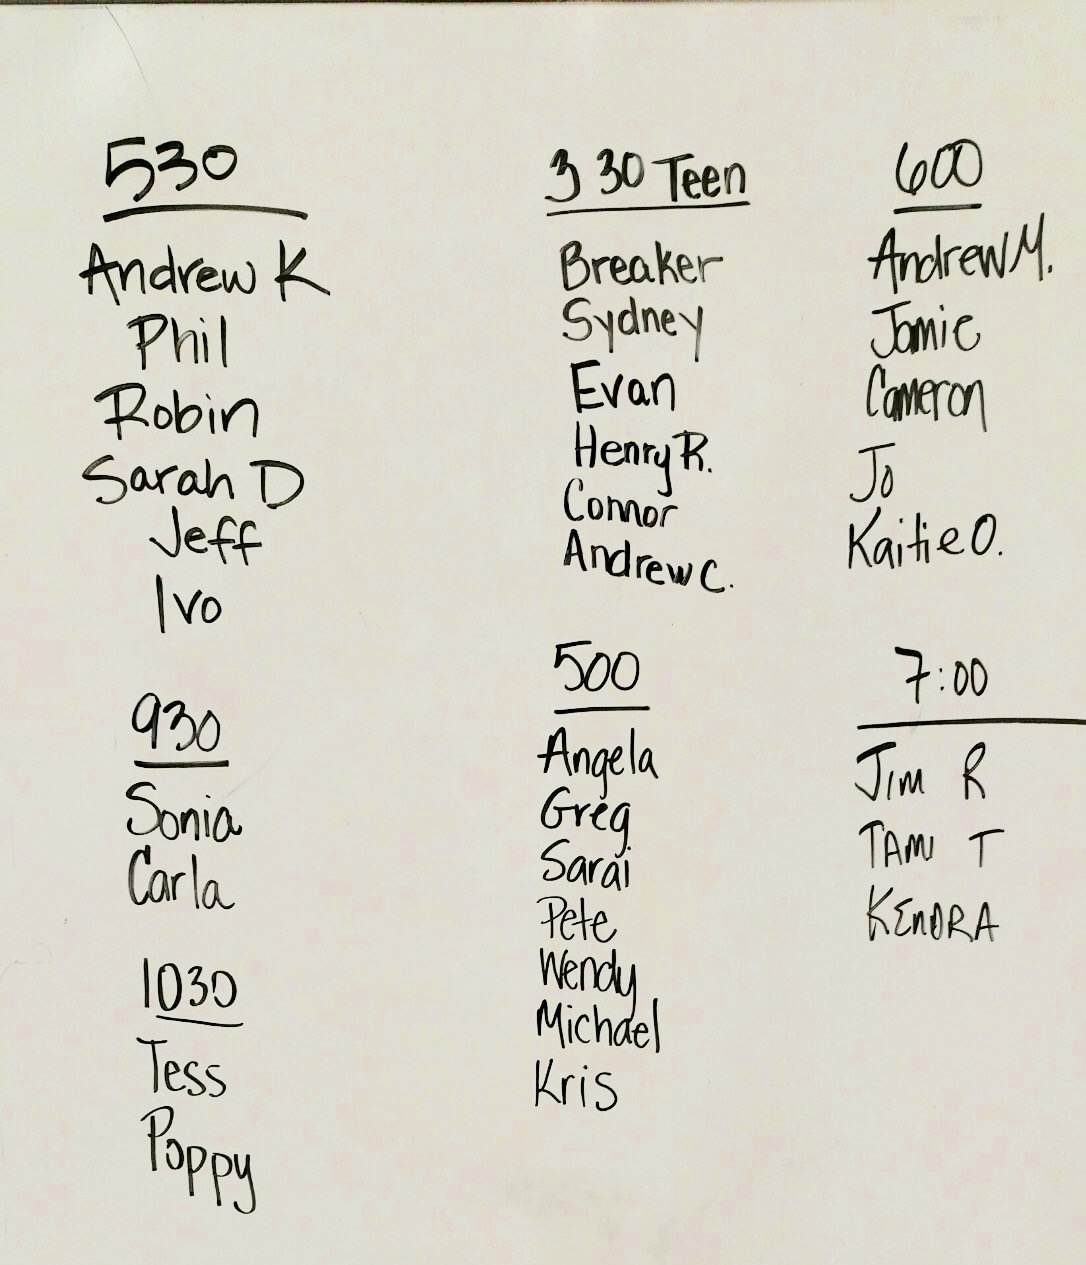 530
Andrew K
Phil
Robin
Sarah D
Jeff
Ivo
930
Sonia
Carla
1030
Tess
Poppy
3 30 Teen
Breaker
Sydney
Evan
Henry R.
Connor
Andrew C.
500
Angela
Greg
Sarai
Pete
Wendy
Michael
Kris
600
Andrew M.
Jamie
Cameron
Jo
Kaitie O.
7:00
Jim R
TAMI T
KENDRA